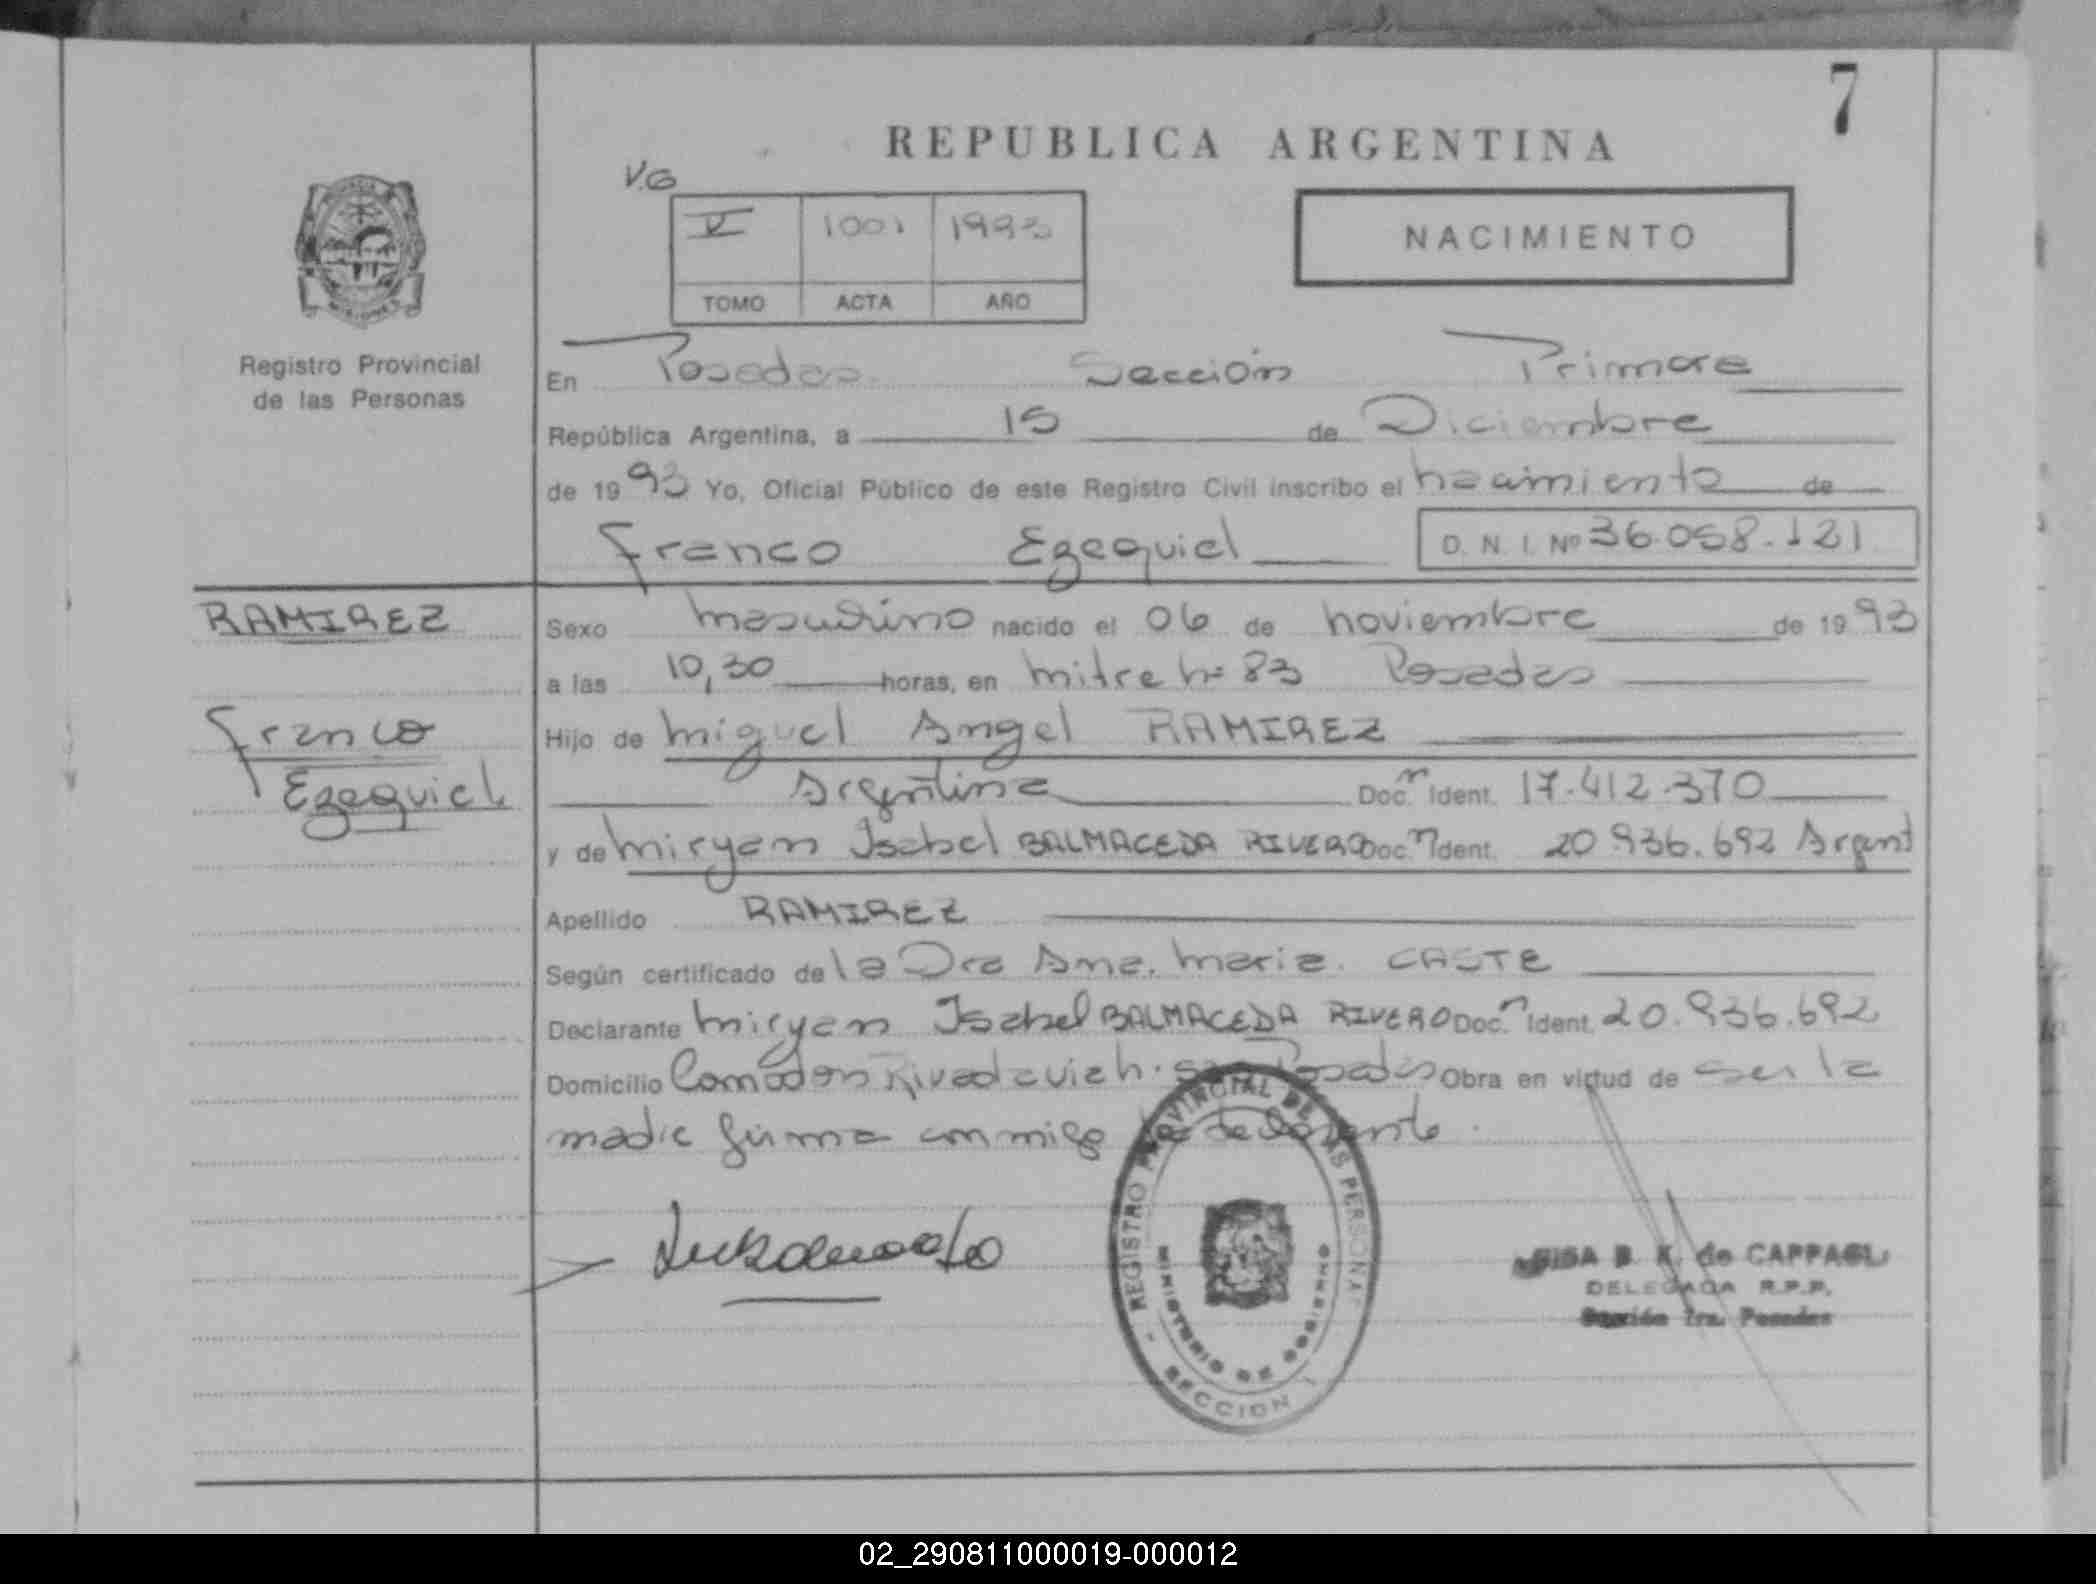 7
REPUBLICA ARGENTINA
V.G
V 1001 1993
TOMO ACTA AÑO
NACIMIENTO
MISIONES
Registro Provincial
de las Personas
En Posadas Sección Primera
República Argentina, a 15 de Diciembre
de 1993 Yo, Oficial Público de este Registro Civil inscribo el nacimiento de
Franco Ezequiel D. N. I. Nº 36.058.121
RAMIREZ
Franco
Ezequiel
Sexo masculino nacido el 06 de noviembre de 1993
a las 10,30 horas, en mitre nº 83 Posadas
Hijo de Miguel Angel RAMIREZ
Argentina Doc. n Ident. 17.412.370
y de Miryan Isabel BALMACEDA RIVERO Doc. n Ident. 20.936.692 Argent
Apellido RAMIREZ
Según certificado de la Dra Ana. Maria. CASTE
Declarante Miryan Isabel BALMACEDA RIVERO Doc. n Ident. 20.936.692
Domicilio Rivadavia Posadas Obra en virtud de ser la
madre firma conmigo la declarante.
REGISTRO PROVINCIAL DE LAS PERSONAS
MINISTERIO DE GOBIERNO
SECCION 1
de CAPPAGLI
DELEGADA R.P.P.
Sección 1ra. Posadas
02_290811000019-000012